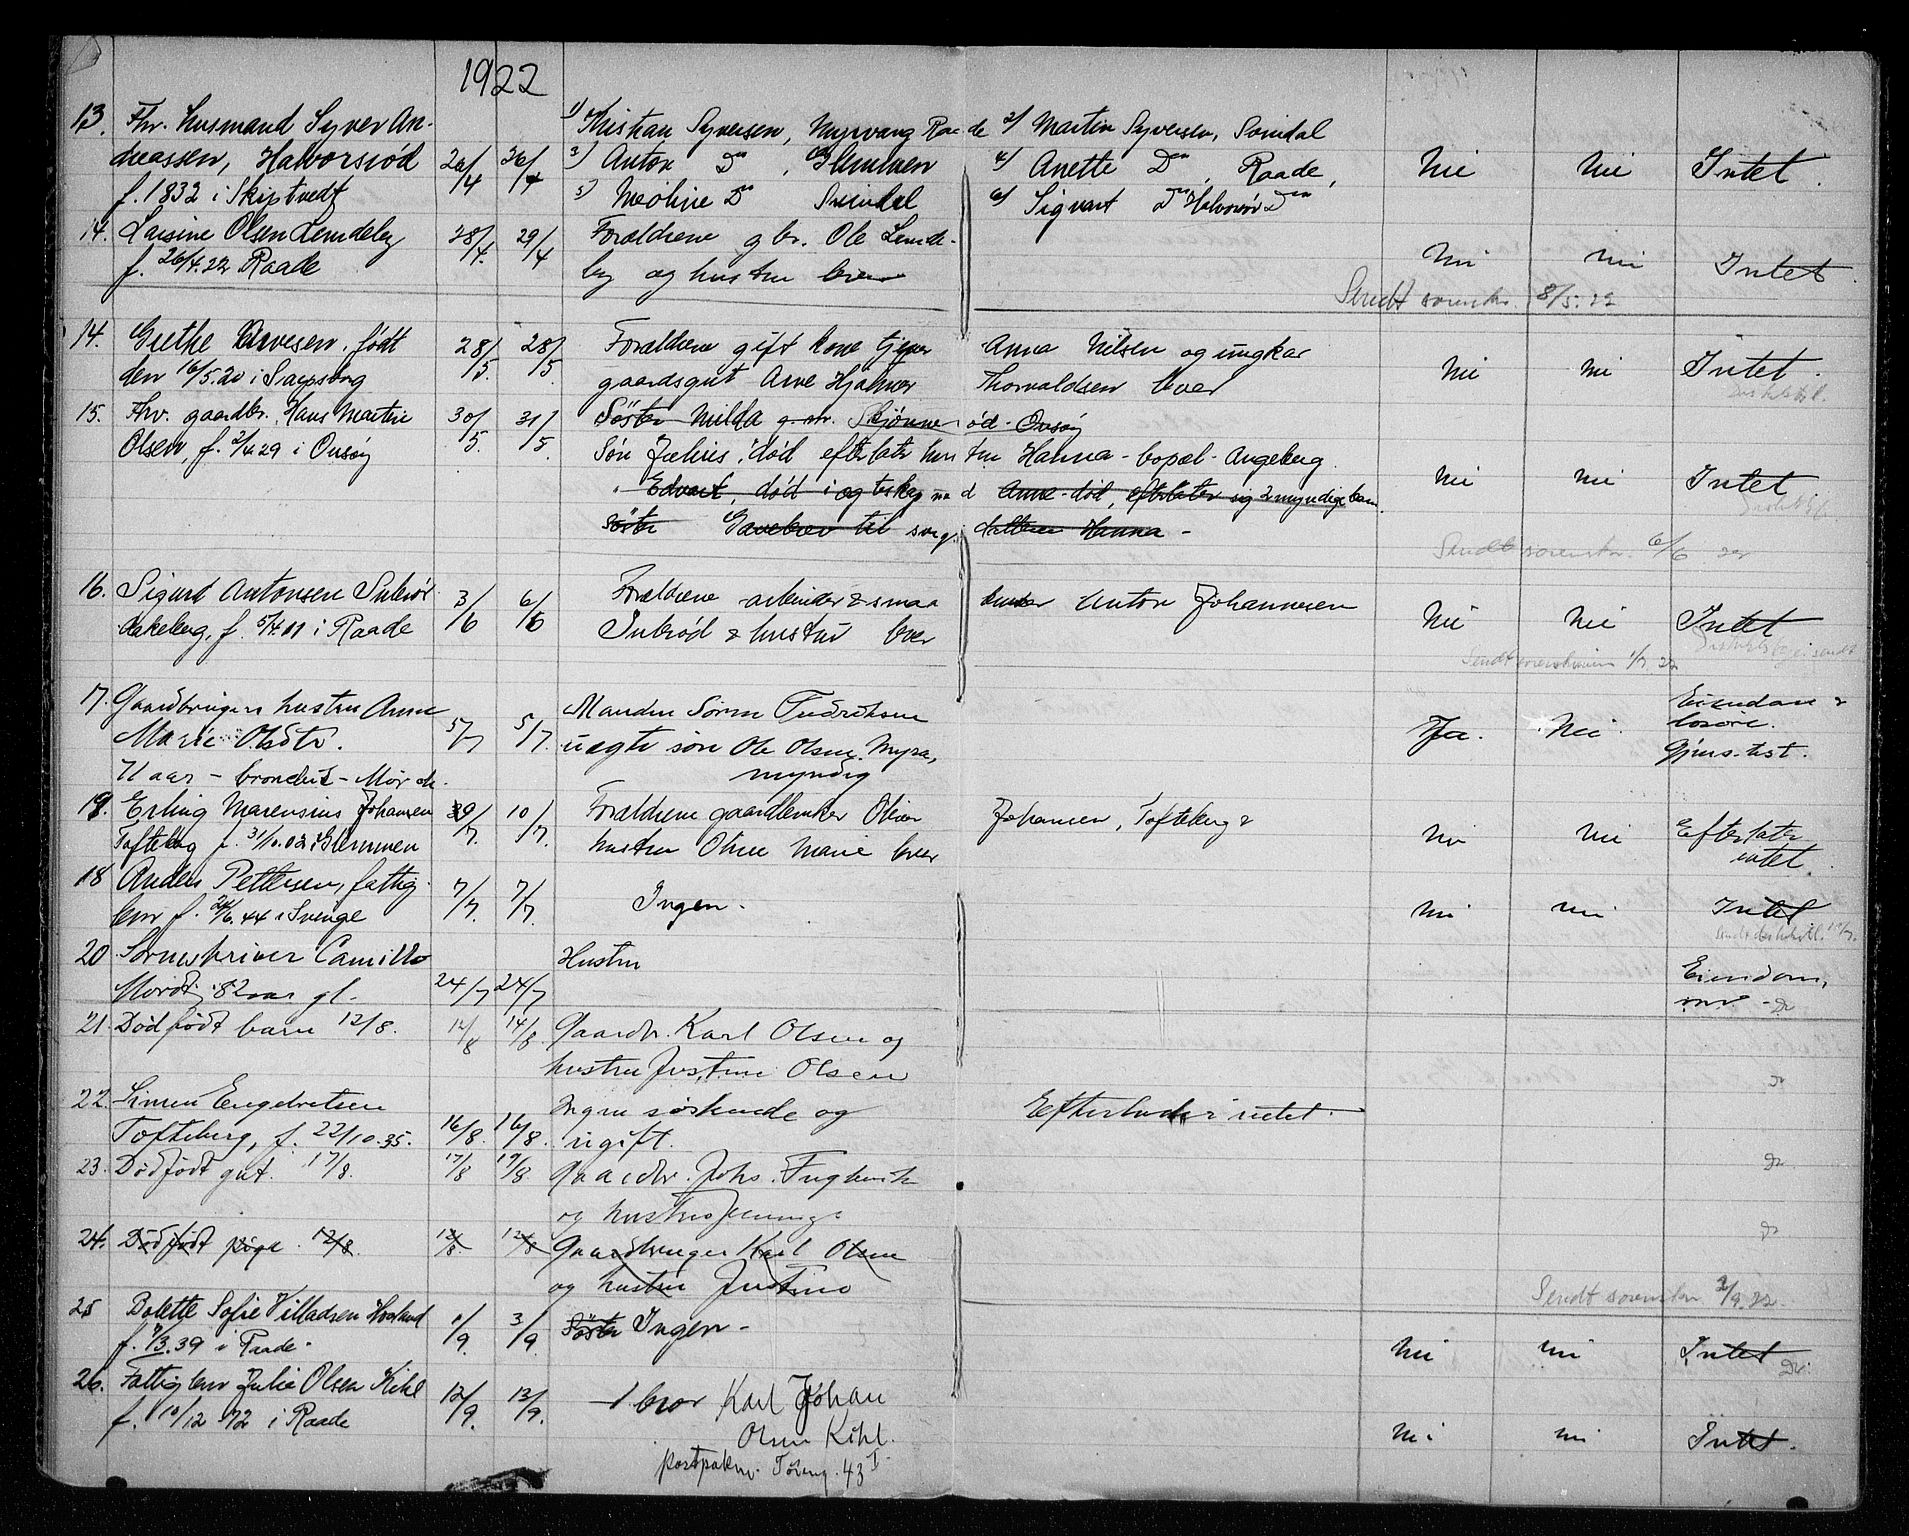 1922
13. Fhv. husmand Syver An-
dreassen, Halvorsrød 26/4 26/4
f. 1832 i Skiptvedt
1) Kristian Syversen, Myrvang Raade 2) Martin Syversen, Soindal
3) Anton Do, Glemmen 4) Anette Do, Raade, Nei Nei Intet.
5) Meoline Do 6) Sigvart Do Halvorsrød Do
14. Laisine Olsen Lundeby 28/4. 29/4 Forældrene gbr. Ole Lunde-
f. 26/4.22 Raade by og hustru lever Nei Nei Intet
Sendt sorenskr. 8/5.22
14. Grethe Arvesen, født 28/5. 28/5 Forældrene gift kone Anna Nilsen og ungkar
den 16/5.20 i Sarpsborg gaardsgut Arve Hjalmar Thorvaldsen lever Nei Nei Intet.
15. Fhv. gaardbr. Hans Martin 30/5. 31/5. Søster Milda Onsøy
Olsen, f. 2/4.29 i Onsøy Søn Julius, død efterlater hustru Hanna - bopæl - Angeberg. Nei Nei Intet
Edvart, død i ægteskap med Anne - død, efterlater sig 2 myndige barn
søster Gavebrev til Hanna -
Sendt sorenskr. 6/6 22
16. Sigurd Antonsen 3/6 6/6 Forældrene arbeider & smaa bruker Anton Johannesen
f. 5/4.01 i Raade & hustru lever Nei Nei Intet
Sendt sorenskriveren 1/7 22
17. Gaardbrugers hustru Anne Manden Søren Fredriksen
Marie Olsdtr. 5/7 5/7. uægte søn Ole Olsen Myra, Ja. Nei Eiendom & løsøre. Gjens. test.
71 aar - myndig
19. Erling Marensius Johansen 9/7. 10/7. Forældrene gaardbruker Oliver Johansen, Tofteberg &
Tofteberg f. 31/10.02 i Glemmen hustru Oline Marie lever Nei Nei Efterlater intet.
18 Anders Pettersen, fattig-
lem f. 24/6.44 i Svinge 7/7. 7/7. Ingen. Nei Nei Intet
20 Sorenskriver Camillo Hustru
82 aar gl. 24/7 24/7 Eiendom,
21. Dødfødt barn 12/8. 12/8 14/8 Gaardbr. Karl Olsen og
hustru Justine Olsen
22. Simen Engebretsen Ingen søskende og Efterlader intet.
Tofteberg, f. 22/10.35. 16/8. 16/8. ugift.
23. Dødfødt gut. 17/8. 17/8 17/8. Gaardbr. Johs. Fuglevik
og hustru Jenny
24. Dødfødt pige 12/8. 12/8. 12/8 Gaardbruger Karl Olsen
og hustru Justine
Sendt sorenskr. 2/9.22.
25 Bolette Sofie Villadsen 1/9. 3/9. Søster Ingen -
f. 7/3.39 i Raade. Nei Nei Intet
26. Fattiglem Julie Olsen Kihl 12/9. 13/9. 1 bror Karl Johan
f. 10/12 72 i Raade Olsen Kihl. Nei Nei Intet.
43 I